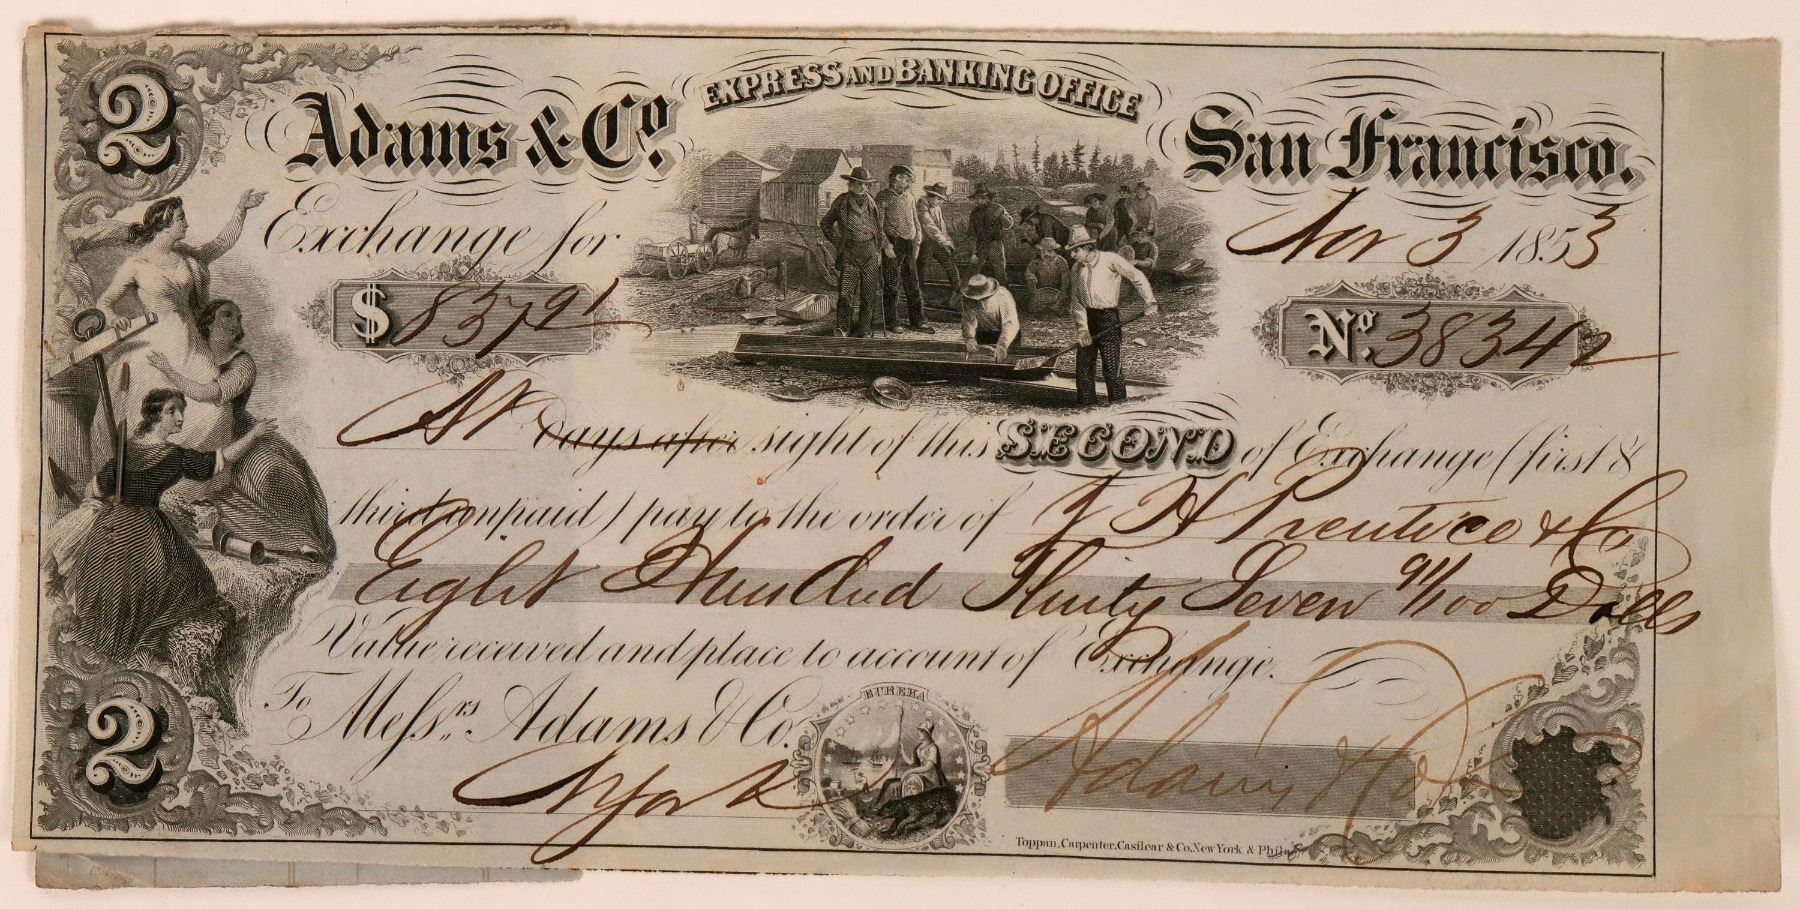 2
Adams & Co. EXPRESS AND BANKING OFFICE San Francisco.
Nov 3 1853
Exchange for
$ 837 91 No. 38342
At days after sight of this SECOND of Exchange (first &
third unpaid) pay to the order of J H Prentice & Co
Eight Hundred Thirty Seven 91/100 Dolls
Value received and place to account of Exchange.
To Messrs. Adams & Co.
N York
EUREKA
Adams & Co
2
Toppan, Carpenter, Casilear & Co. New York & Phila.